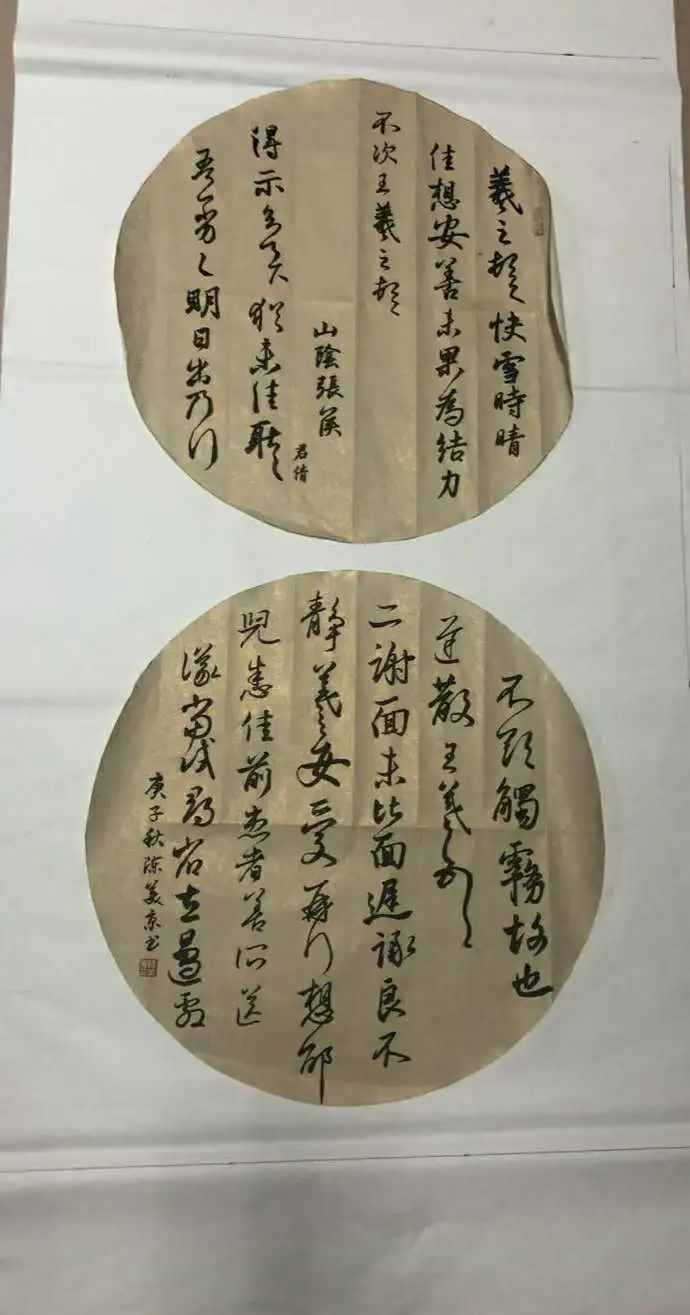 羲之頓首快雪時晴
佳想安善未果為結力
不次王羲之頓首
山陰張侯
君倩
得示知足下猶未佳耿耿
吾亦劣劣明日出乃行
不欲觸霧故也
遲散王羲之頓首
二謝面未比面遲詠良不
靜羲之女愛再拜想邰
兒悉佳前患者善所送
議當試尋省左邊劇
庚子秋陈美京书